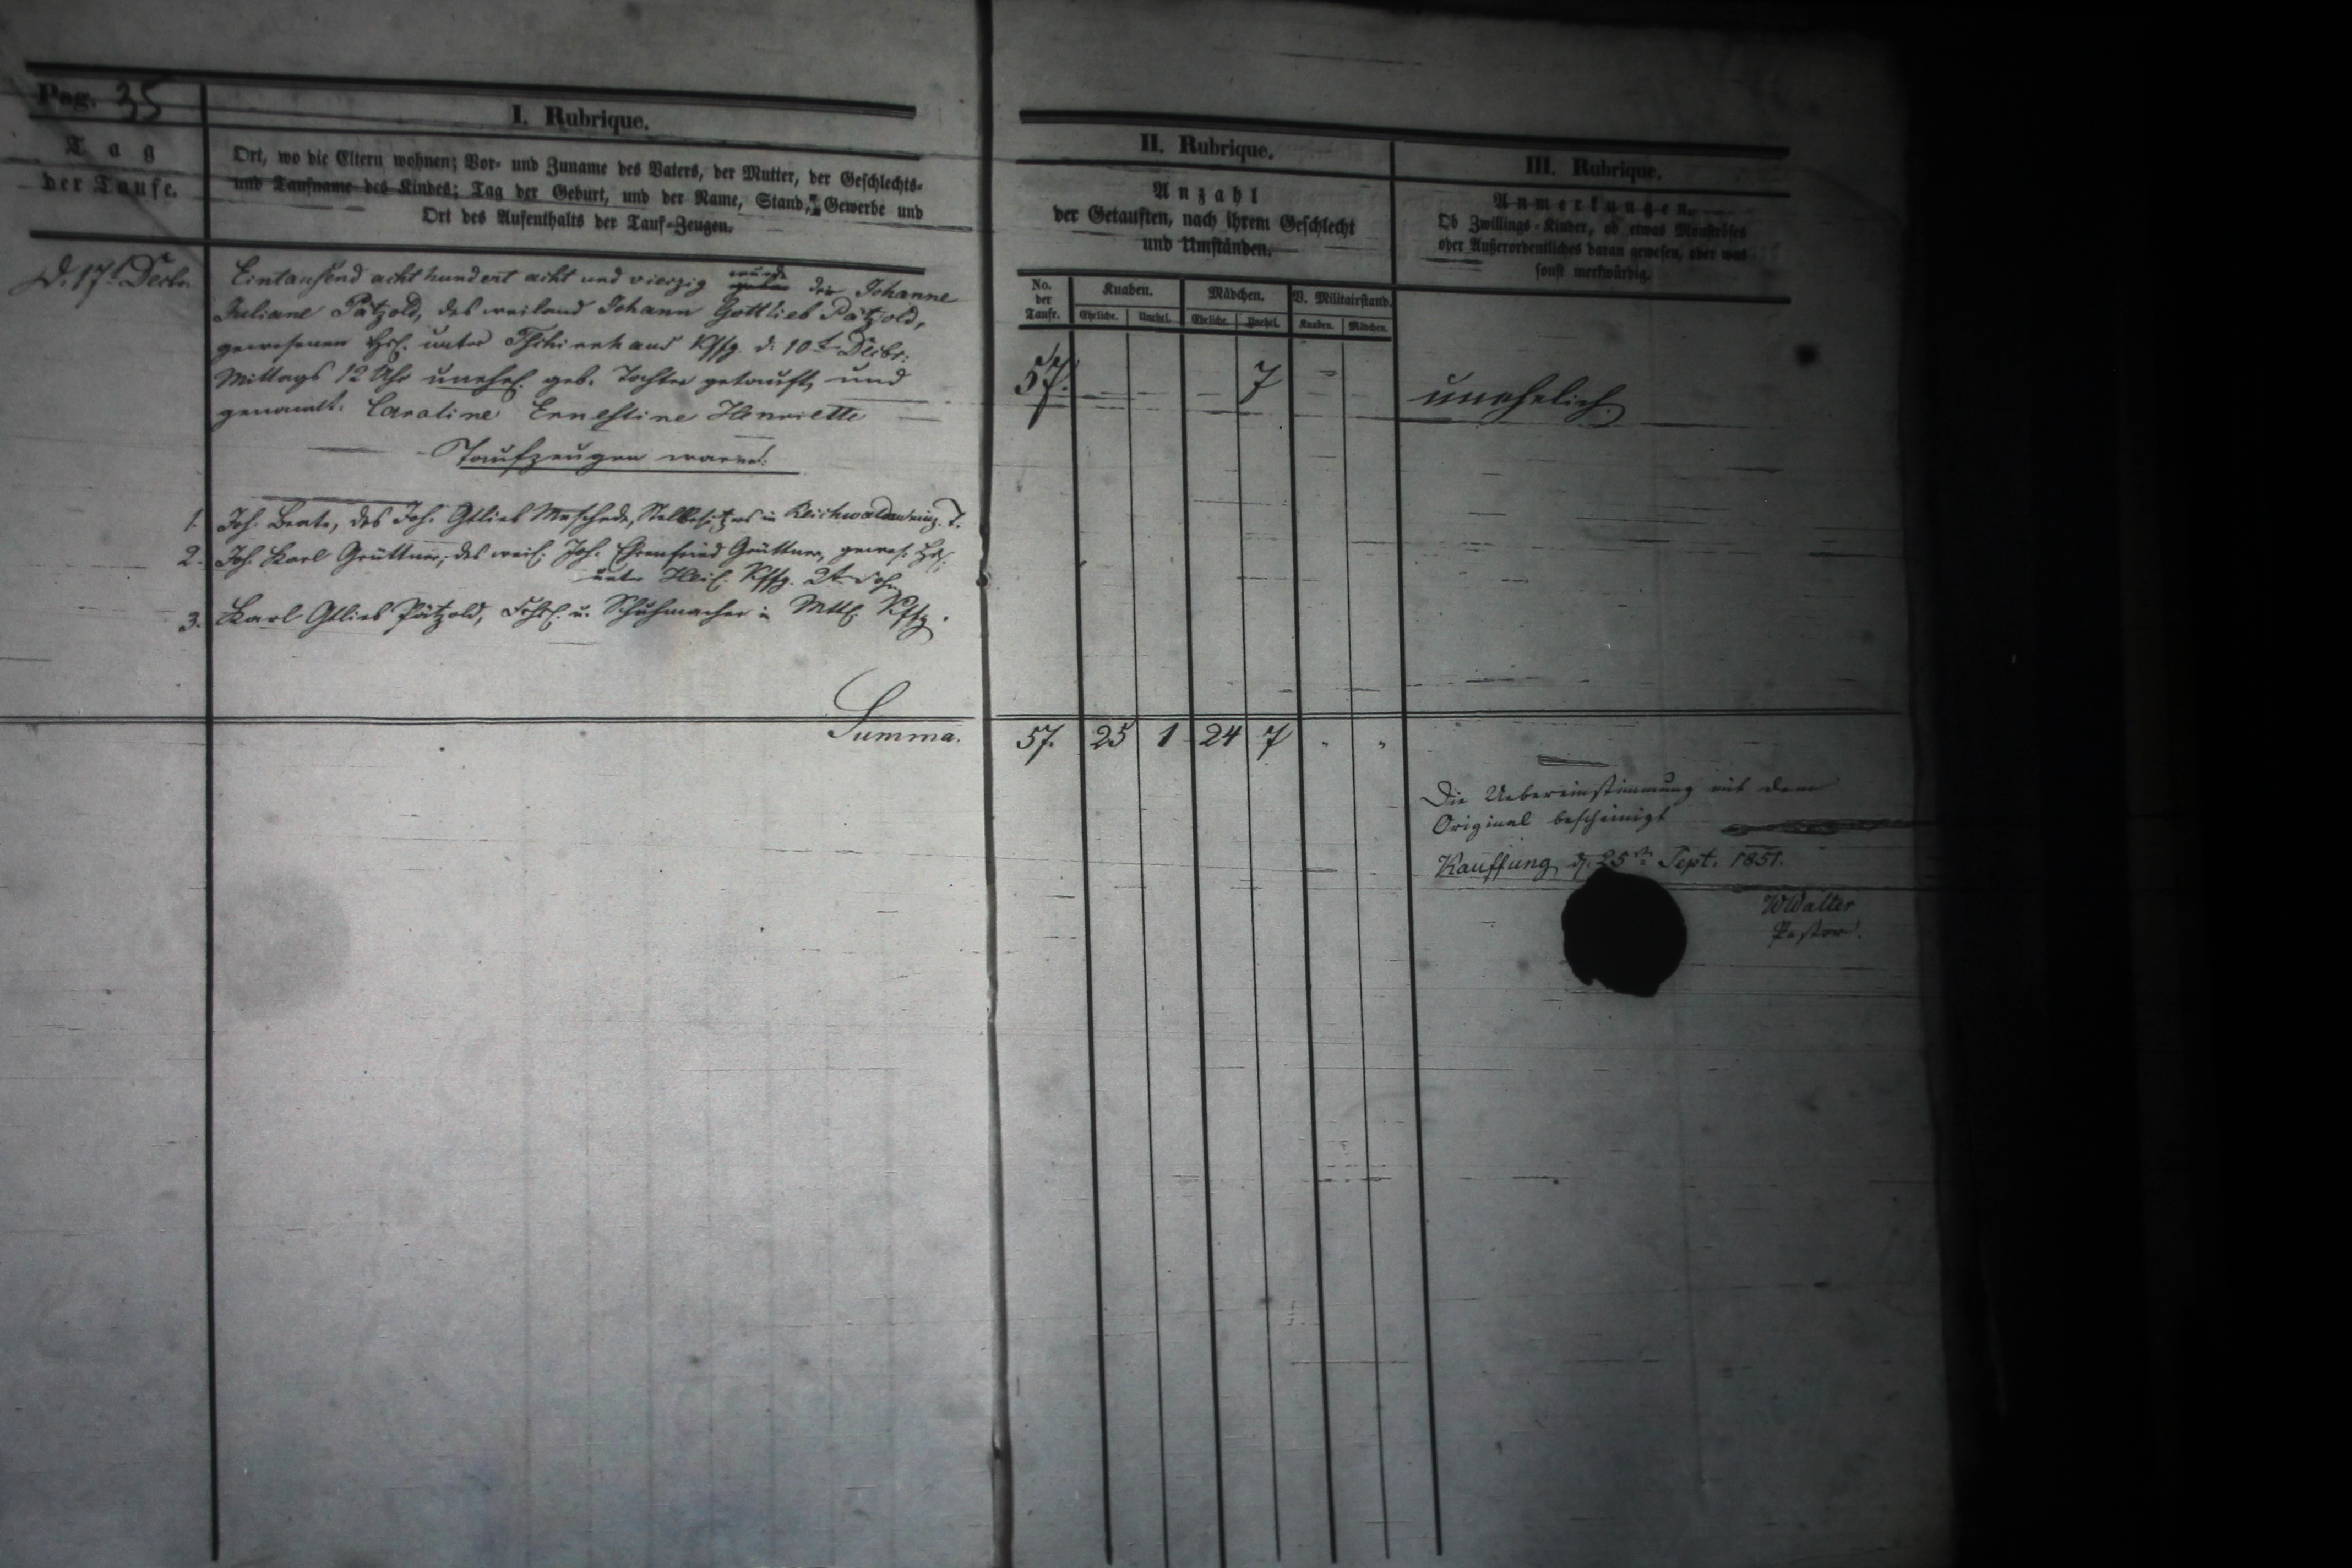 Pag. 35
I. Rubrique.
Tag
der Taufe.
Ort, wo die Eltern wohnen; Vor- und Zuname des Vaters, der Mutter, der Geschlechts-
und Taufname des Kindes; Tag der Geburt, und der Name, Stand, Gewerbe und
Ort des Aufenthalts der Tauf-Zeugen.
D. 17t Decbr.
Eintausend acht hundert acht und vierzig wurde der Johanne
Juliane Pätzold, des weiland Johann Gottlieb Pätzold,
gewesenen Hsl. unter Tschirnhaus Kffg. d. 10t Decbr.
Mittags 12 Uhr unehel. geb. Tochter getauft, und
genannt. Caroline Ernestine Henriette
Taufzeugen waren:
1. Joh. Beate, des Joh. Gtlieb Meschede, Stellbesitzers in T.
2. Joh. Karl Grüttner, des weil. Joh. Ehrenfried Grüttner, gewes. Hsl.
unter Kffg. 2t Sohn
3. Karl Gtlieb Pätzold, u. Schuhmacher in Mttl. Kffg.
Summa.
II. Rubrique.
Anzahl
der Getauften, nach ihrem Geschlecht
und Umständen.
No. der Taufe.
Knaben.
Mädchen.
V. Militairstand.
Eheliche.
Unehel.
Eheliche.
Unehel.
Knaben.
Mädchen.
57. 7
57. 25 1 24 7
III. Rubrique.
Anmerkungen.
Ob Zwillings-Kinder, ob etwas Monströses
oder Außerordentliches daran gewesen, oder was
sonst merkwürdig.
unehelich.
Die Uebereinstimmung mit dem
Original bescheinigt
Kauffung, d. 25ten Sept. 1851.
WWalter
Pastor.